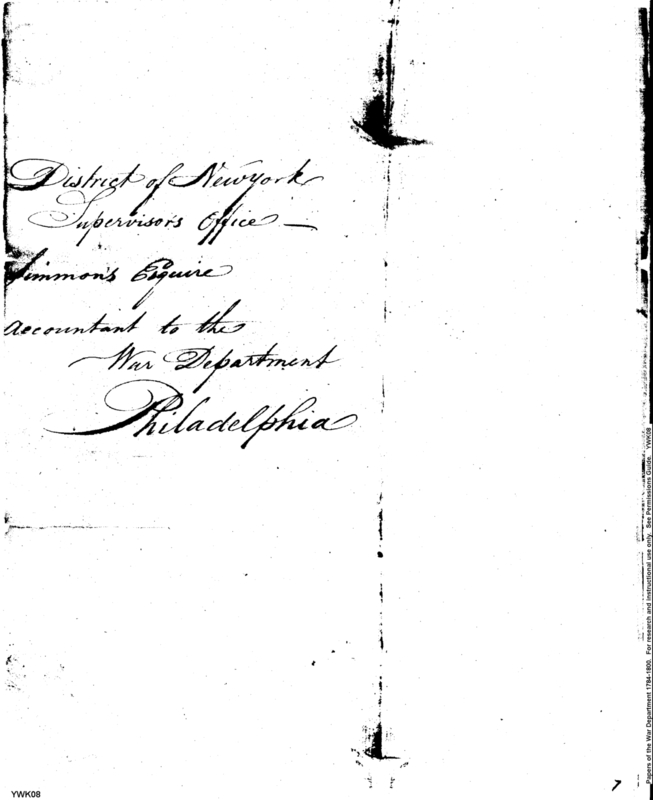 District of Newyork
Supervisors Office —
Simmons Esquire
accountant to the
War Department
Philadelphia
7
YWK08
Papers of the War Department 1784-1800. For research and instructional use only. See Permissions Guide. YWK08